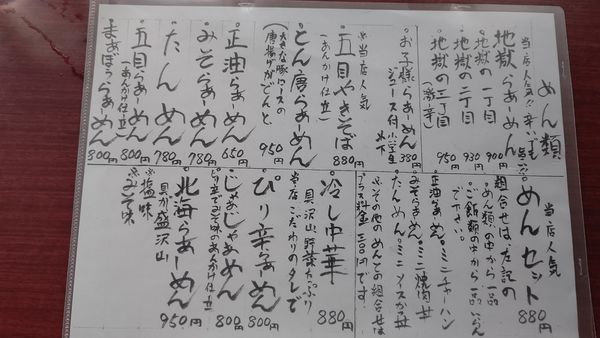 めん類
当店人気!! 辛いもの
地獄らぁーめん
地獄の一丁目 900円
地獄の二丁目 930円
地獄の三丁目 950円
(激辛)
お子様らぁーめん 380円
ジュース付 小学生以下
※当店人気
五目やきそば 880円
(あんかけ仕立)
とん唐らぁーめん 950円
(大きな豚ロースの
唐揚げがどんと)
正油らぁーめん 650円
みそらぁーめん 780円
たんめん 780円
五目らぁーめん 800円
(あんかけ仕立)
まぁぼうらぁーめん 800円
当店人気
めんセット 880円
組合せは左記の
めん類の中から一品
ご飯類の中から一品
で下さい。
正油らぁめん ミニチャーハン
みそらぁめん ミニ焼肉丼
たんめん ミニソースかつ丼
※その他のめんとの組合せは
プラス料金 円です
冷し中華 880円
具沢山野菜たっぷり
当店こだわりのタレで
ぴり辛らぁめん 800円
じゃぁじゃぁめん 800円
みそ味のあんかけ仕立
北海らぁーめん 950円
具が盛沢山
※塩味
※みそ味